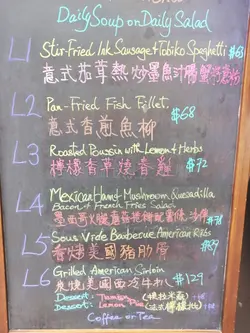 Daily Soup or Daily Salad
L1 Stir-Fried Ink Sausage Tobiko Spaghetti $63
意式茄茸熱炒墨魚汁腸蟹籽意粉
L2 Pan-Fried Fish Fillet $68
意式香煎魚柳
L3 Roasted Poussin with Lemon & Herbs
檸檬香草燒春雞 $72
L4 Mexican Ham & Mushroom Quesadilla
Bacon & French Fries Salad
墨西哥火腿蘑菇
L5 Sous Vide Barbecue American Ribs
美國豬肋骨
L6 Grilled American Sirloin
炭燒美國西冷牛扒 $129
Dessert:
Dessert: Lemon
Coffee or Tea